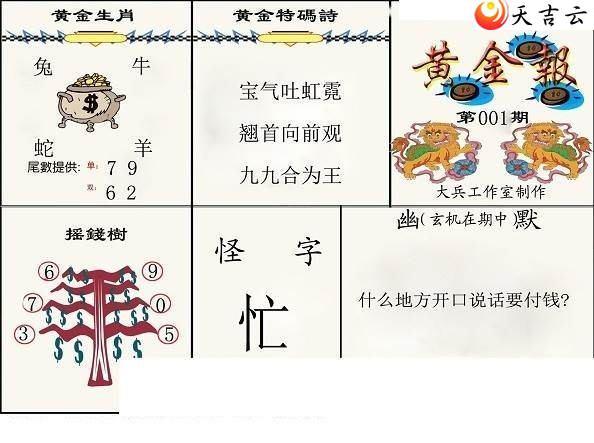 天吉云
黄金生肖
兔 牛
$
蛇 羊
尾數提供: 单: 7 9
双: 6 2
黄金特碼詩
宝气吐虹霓
翘首向前观
九九合为王
黄金報
第001期
大兵工作室制作
摇錢樹
6 9
7 0
3 5
$ $ $ $ $ $ $ $ $ $ $ $
怪 字
忙
幽(玄机在期中)默
什么地方开口说话要付钱?